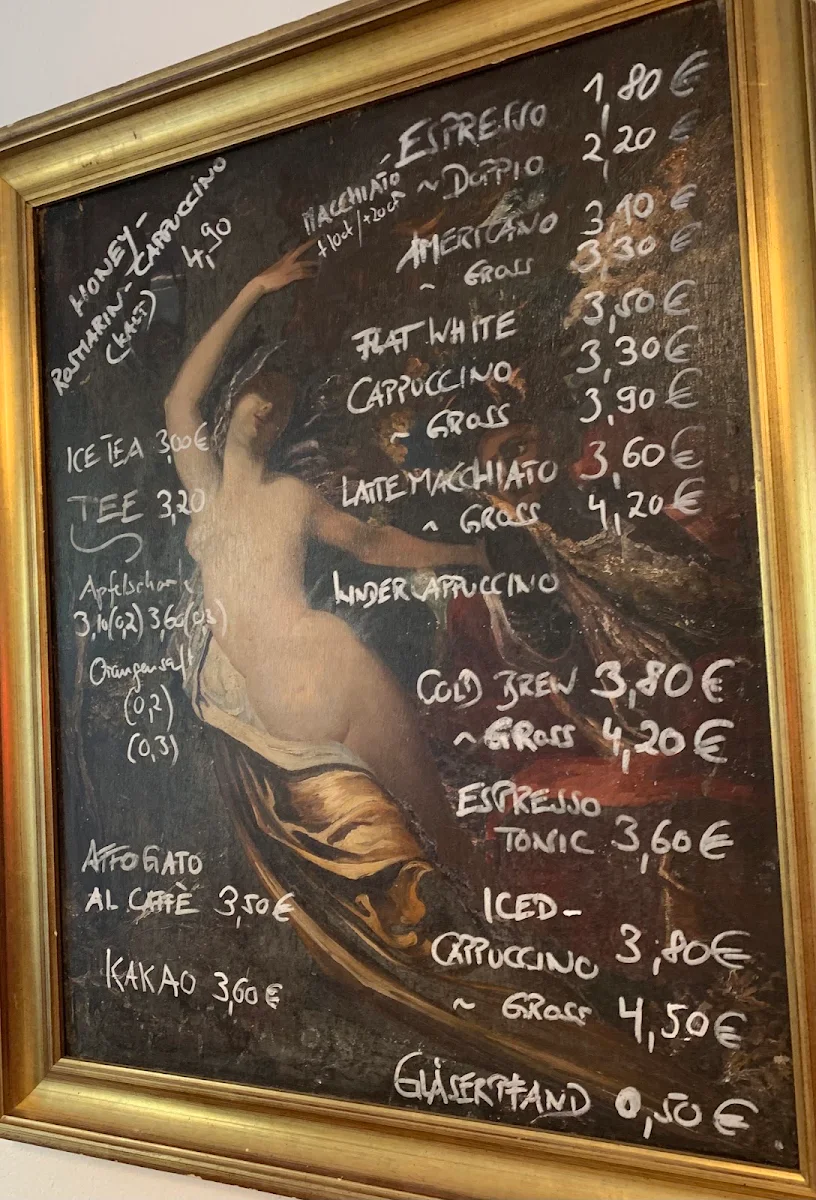 HONEY-
ROSMARIN-CAPPUCCINO
(KALT)
4,90
ICE TEA 3,00€
TEE 3,20
Apfelschorle
3,10(0,2) 3,60(0,3)
Orangensaft
(0,2)
(0,3)
AFFOGATO
AL CAFFÈ 3,50€
KAKAO 3,60€
ESPRESSO 1,80€
MACCHIATO
+10ct/+20ct
~ DOPPIO 2,20€
AMERICANO 3,10€
~ GROSS 3,30€
FLAT WHITE 3,50€
CAPPUCCINO 3,30€
~ GROSS 3,90€
LATTE MACCHIATO 3,60€
~ GROSS 4,20€
KINDERCAPPUCCINO
COLD BREW 3,80€
~ GROSS 4,20€
ESPRESSO
TONIC 3,60€
ICED-
CAPPUCCINO 3,80€
~ GROSS 4,50€
GLÄSERPFAND 0,50€